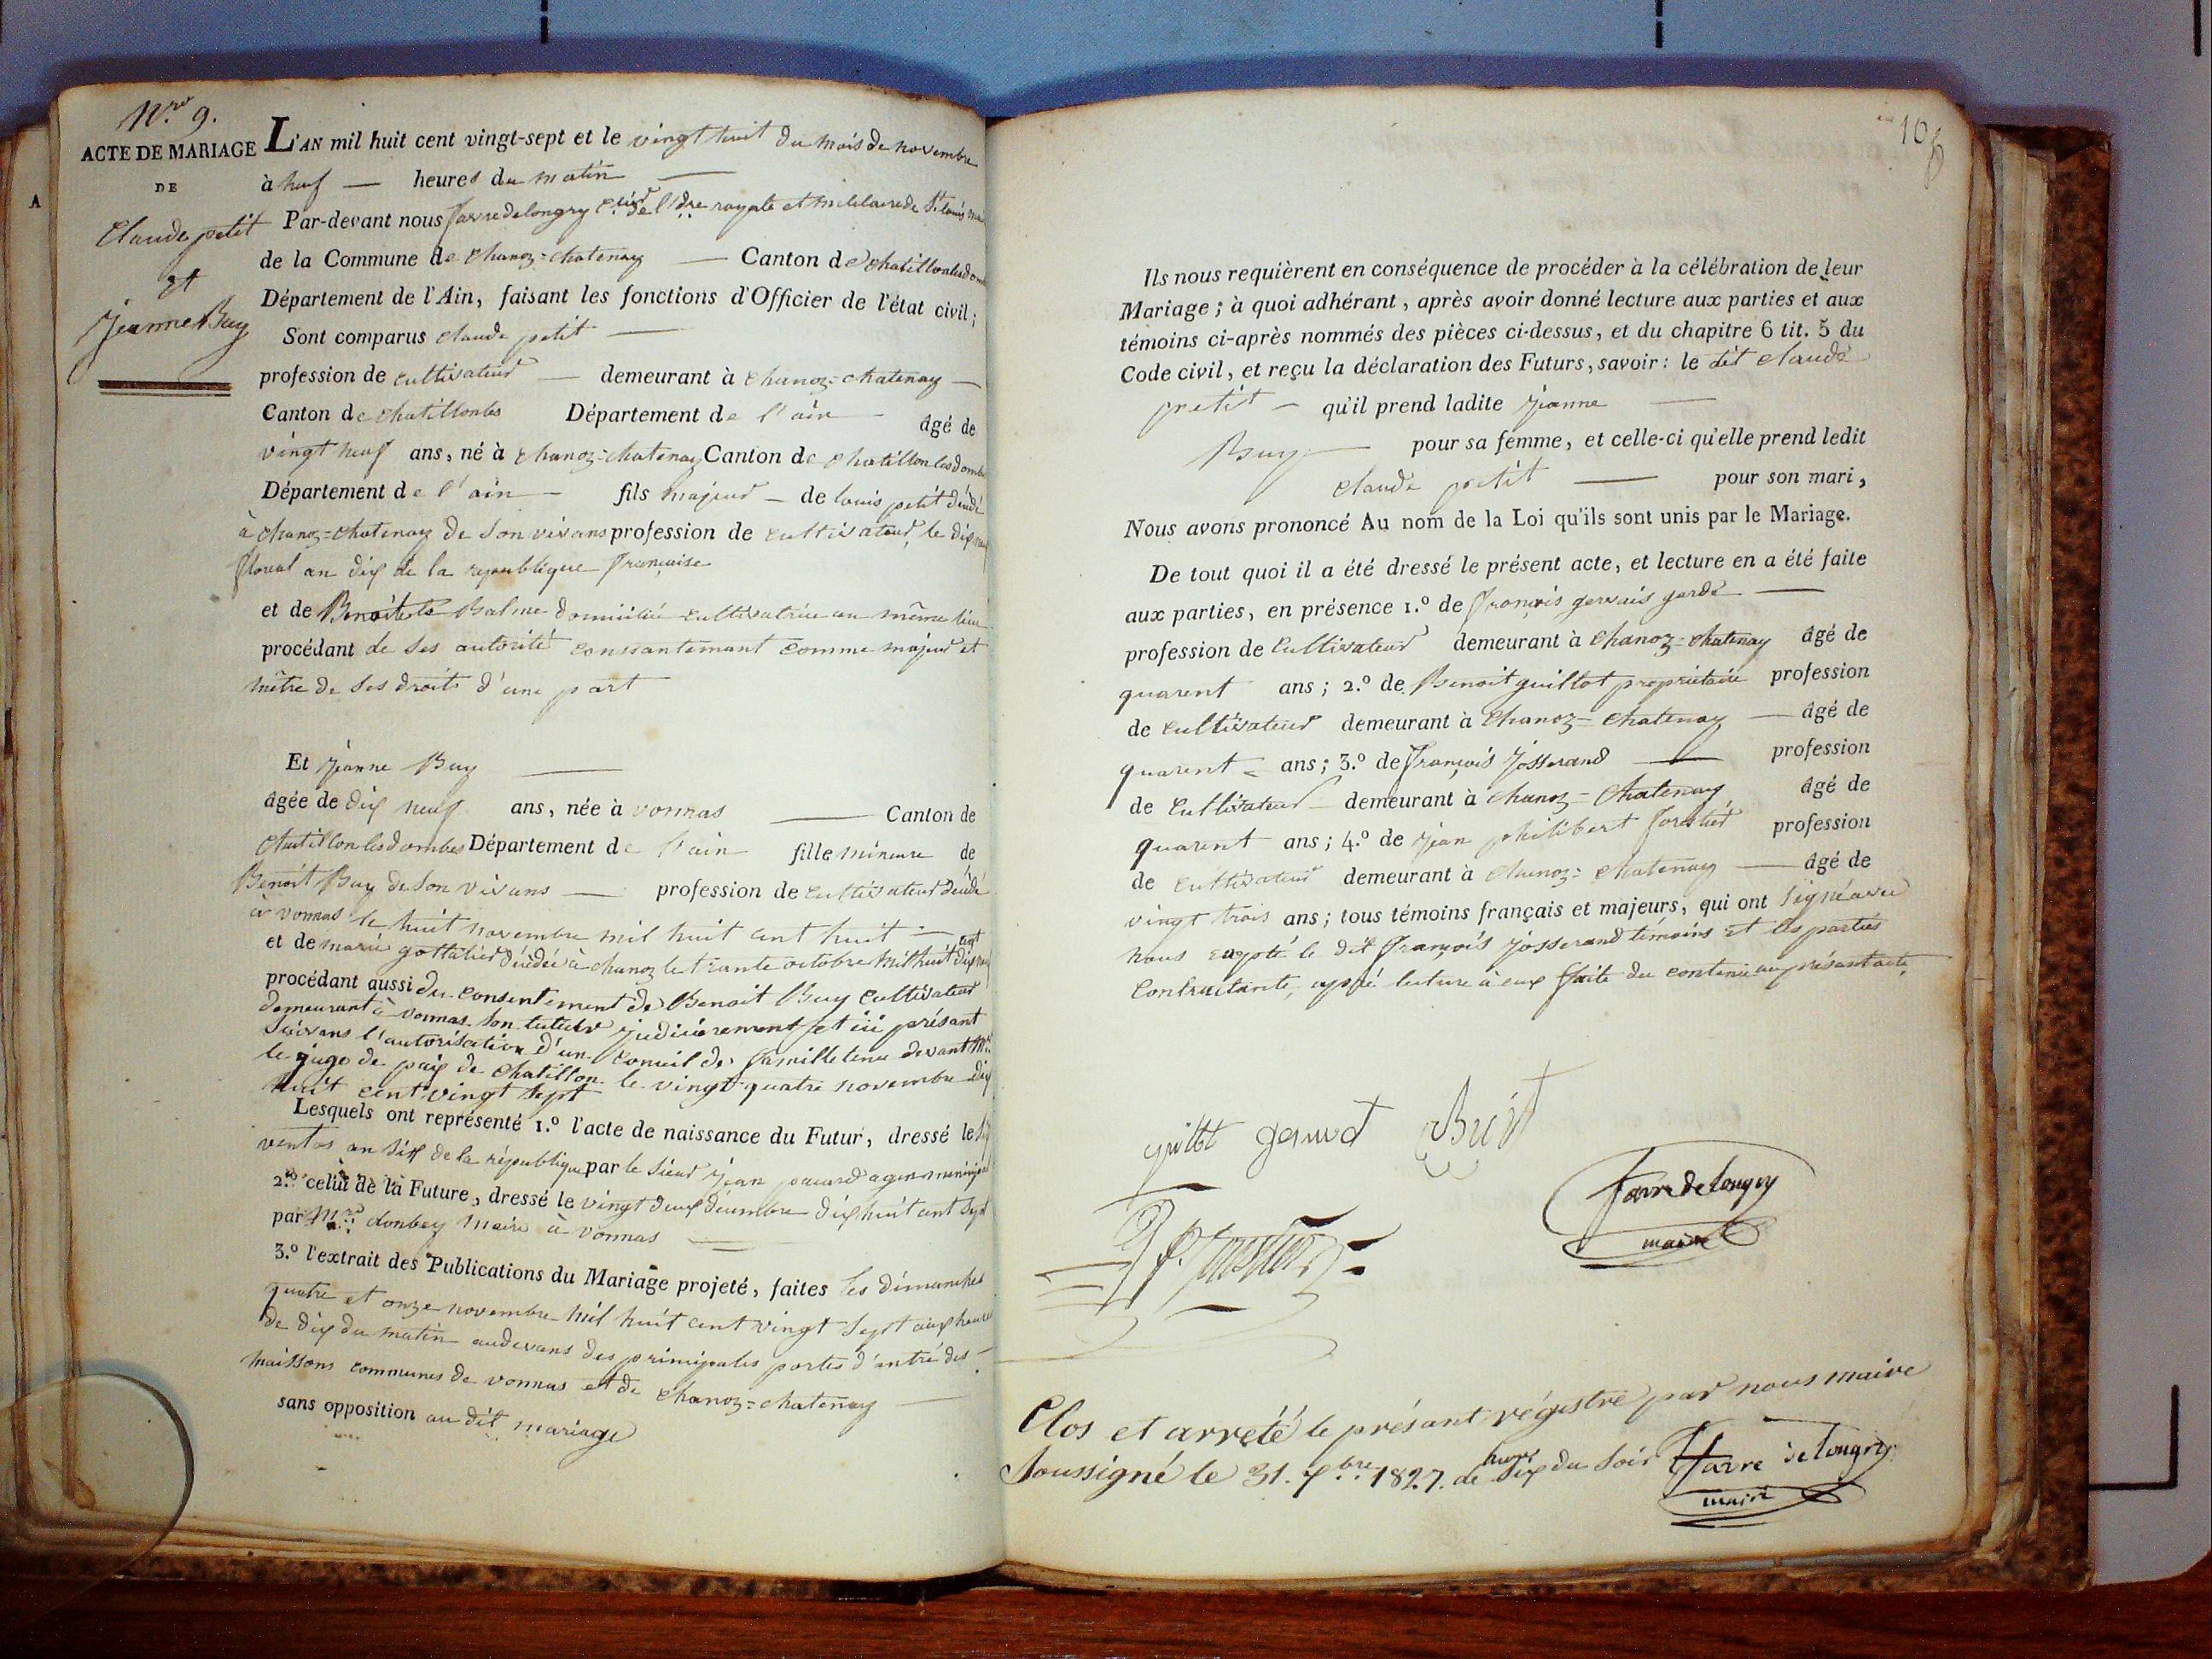 Nro 9.
ACTE DE MARIAGE
DE
Claude petit
et
jeanne Buy
A
L'AN mil huit cent vingt-sept et le vingt huit du mois de novembre
à neuf — heures du matin —
Par-devant nous favre de longry de l'dre royale et militaire de St. louis
de la Commune de Chanoz=chatenay — Canton de chatillon les
Département de l'Ain, faisant les fonctions d'Officier de l'état civil;
Sont comparus claude petit —
profession de cultivateur — demeurant à Chanoz=chatenay —
Canton de chatillon les Département de l'ain — âgé de
vingt neuf ans, né à Chanoz=chatenay Canton de chatillon les dombes
Département de l'ain — fils majeur — de louis petit décédé
à chanoz=chatenay de son vivans profession de cultivateur, le
floreal an dix de la republique française
et de Benoite Balme domiciliée cultivatrice au même lieu
procédant de ses autorité consantemant comme majeur et
mêtre de ses droits d'une part
Et jeanne Buy —
âgée de dix neuf ans, née à vonnas — Canton de
chatillon les dombes Département de l'ain fille mineure de
Benoit Buy de son vivans — profession de cultivateur décédé
à vonnas le huit novembre mil huit cent huit —
et de marie gottalier décédée à chanoz le trante octobre mil huit cent
procédant aussi du consentement de Benoit Buy cultivateur
demeurant à vonnas son tuteur judicièrement et ici présant
suivans l'autorisation d'un conseil de famille tenu devant Mr.
le juge de paix de chatillon le vingt quatre novembre dix
huit cent vingt sept
Lesquels ont représenté 1.º l'acte de naissance du Futur, dressé le
ventos an six de la république par le sieur jean agen
2.º celui de la Future, dressé le vingt deux décembre dix huit cent sept
par Mr. donbey maire à vonnas —
3.º l'extrait des Publications du Mariage projeté, faites les dimanches
quatre et onze novembre mil huit cent vingt sept aux heures
de dix du matin audevans des principales portes d'antré des
maissons communes de vonnas et de chanoz=chatenay —
sans opposition au dit mariage
106
Ils nous requièrent en conséquence de procéder à la célébration de leur
Mariage; à quoi adhérant, après avoir donné lecture aux parties et aux
témoins ci-après nommés des pièces ci-dessus, et du chapitre 6 tit. 5 du
Code civil, et reçu la déclaration des Futurs, savoir: le dit claude
petit — qu'il prend ladite jeanne —
Buy — pour sa femme, et celle-ci qu'elle prend ledit
claude petit — pour son mari,
Nous avons prononcé Au nom de la Loi qu'ils sont unis par le Mariage.
De tout quoi il a été dressé le présent acte, et lecture en a été faite
aux parties, en présence 1.º de françois gervais garde —
profession de cultivateur demeurant à Chanoz=chatenay âgé de
quarent ans; 2.º de Benoit guillot proprietaire profession
de cultivateur demeurant à Chanoz=chatenay — âgé de
quarent — ans; 3.º de françois josserand — profession
de cultivateur — demeurant à chanoz=chatenay âgé de
quarent ans; 4.º de jean philibert forestier profession
de cultivateur demeurant à chanoz=chatenay — âgé de
vingt trois ans; tous témoins français et majeurs, qui ont signé avec
nous exepté le dit françois josserand témoins et les parties
contractante, après lecture à eux faite du contenu au présant acte.
favre de longry
maire
Clos et arreté le présant régistre par nous maire
soussigné le 31. Xbre 1827. de heure six du soir favre de longry
maire